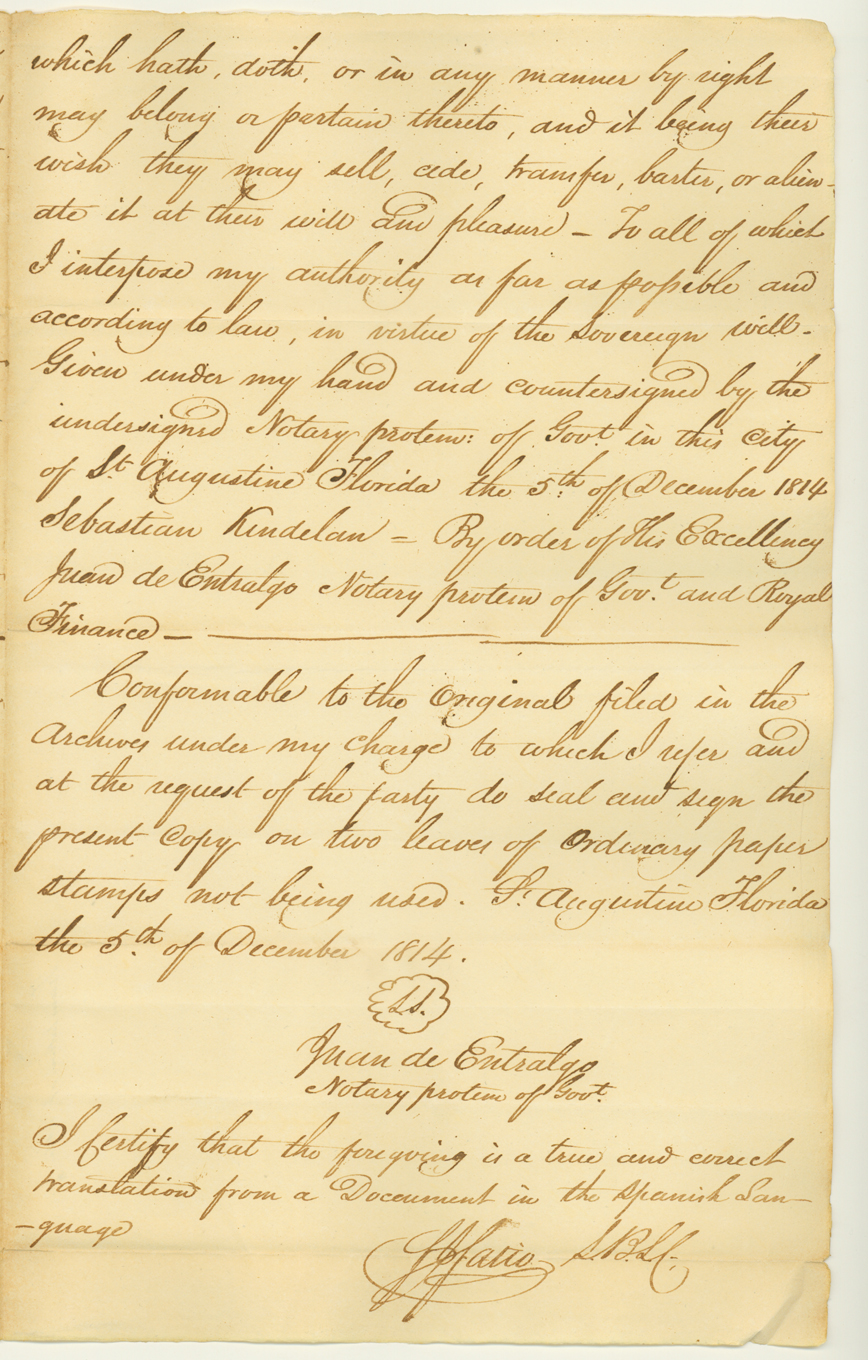 which hath, doth, or in any manner by right
may belong or partain thereto, and it being their
wish they may sell, cede, transfer, barter, or alien-
ate it at their will and pleasure — To all of which
I interpose my authority as far as possible and
according to law, in virtue of the Sovereign will.
Given under my hand and countersigned by the
undersigned Notary protem: of Govt. in this City
of St. Augustine Florida the 5th. of December 1814
Sebastian Kindelan = By order of His Excellency
Juan de Entralgo Notary protem of Gov.t and Royal
Finance —
Conformable to the Original filed in the
Archives under my charge to which I refer and
at the request of the party do seal and sign the
present Copy on two leaves of Ordinary paper
stamps not being used. St. Augustine Florida
the 5.th of December 1814.
L.S.
Juan de Entralgo
Notary protem of Govt.
I Certify that the foregoing is a true and correct
translation from a Document in the Spanish Lan-
-guage